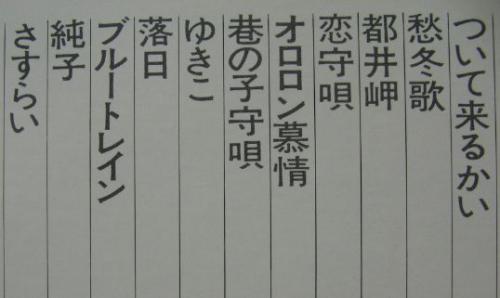 ついて来るかい
愁冬歌
都井岬
恋守唄
オロロン慕情
巷の子守唄
ゆきこ
落日
ブルートレイン
純子
さすらい